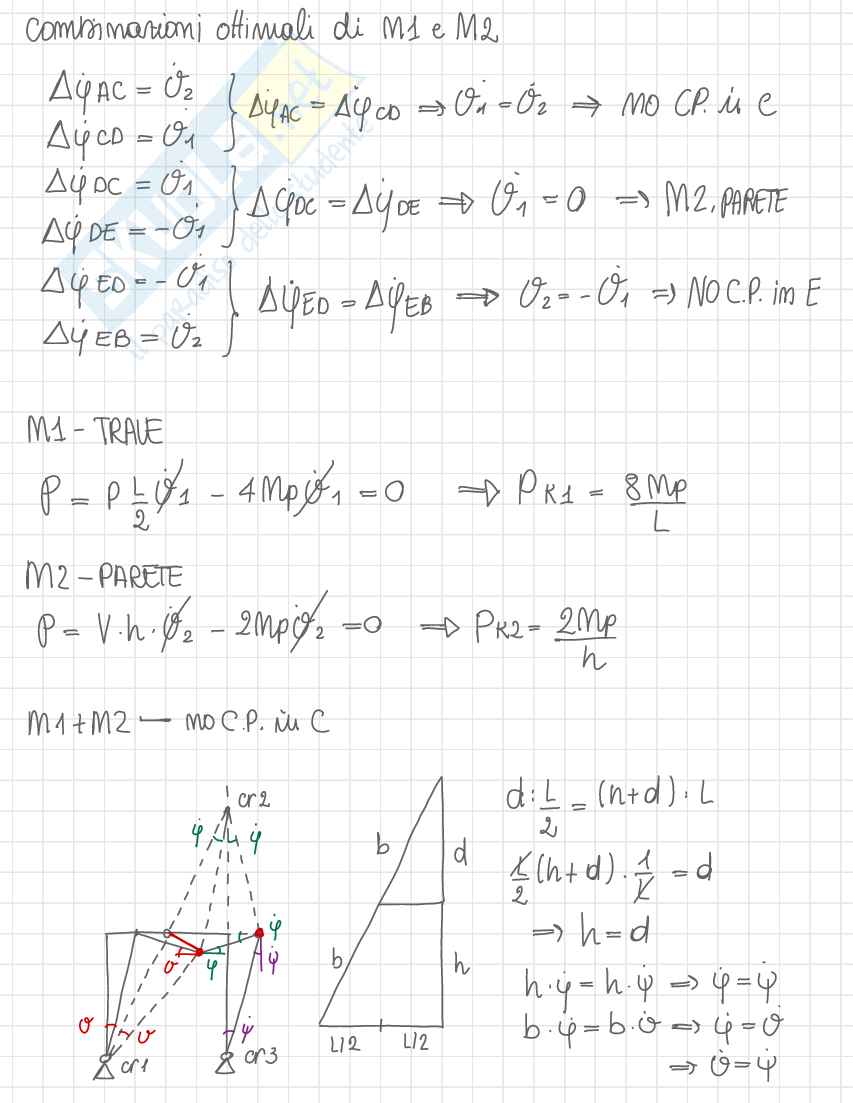 Combinazioni ottimali di M1 e M2
Δφ̇AC = ϑ̇2
Δφ̇CD = ϑ̇1
Δφ̇AC = Δφ̇CD ⇒ ϑ̇1 = ϑ̇2 ⇒ NO CP. in C
Δφ̇DC = ϑ̇1
Δφ̇DE = -ϑ̇1
Δφ̇DC = Δφ̇DE ⇒ ϑ̇1 = 0 ⇒ M2, PARETE
Δφ̇ED = -ϑ̇1
Δφ̇EB = ϑ̇2
Δφ̇ED = Δφ̇EB ⇒ ϑ2 = -ϑ̇1 ⇒ NO C.P. in E
M1 - TRAVE
P = P L/2 ϑ̇1 - 4Mpϑ̇1 = 0 ⇒ PK1 = 8Mp/L
M2 - PARETE
P = V·h·ϑ̇2 - 2Mpϑ̇2 = 0 ⇒ PK2 = 2Mp/h
M1+M2 — no C.P. in C
cr2
φ̇ φ̇
φ̇
ψ̇
ϑ φ
ϑ ϑ ψ̇
cr1 cr3
b d
b h
L/2 L/2
d : L/2 = (h+d) : L
L/2 (h+d) · 1/L = d
⇒ h = d
h·φ̇ = h·ψ̇ ⇒ φ̇ = ψ̇
b·φ̇ = b·ϑ̇ ⇒ φ̇ = ϑ̇
⇒ ϑ̇ = ψ̇